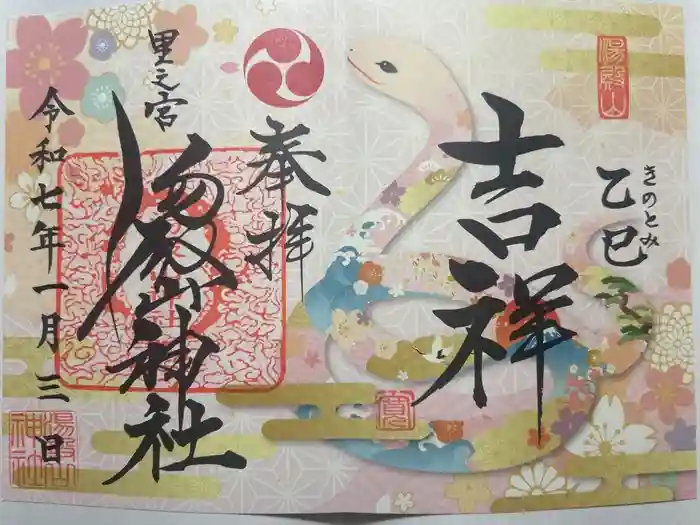 湯殿山
吉祥
きのとみ
乙巳
寳
奉拝
里之宮
湯殿山神社
令和七年一月三日
湯殿山神社